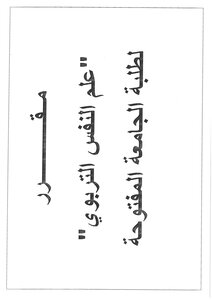 مقـــــــرر
"علم النفس التربوي"
لطلبة الجامعة المفتوحة